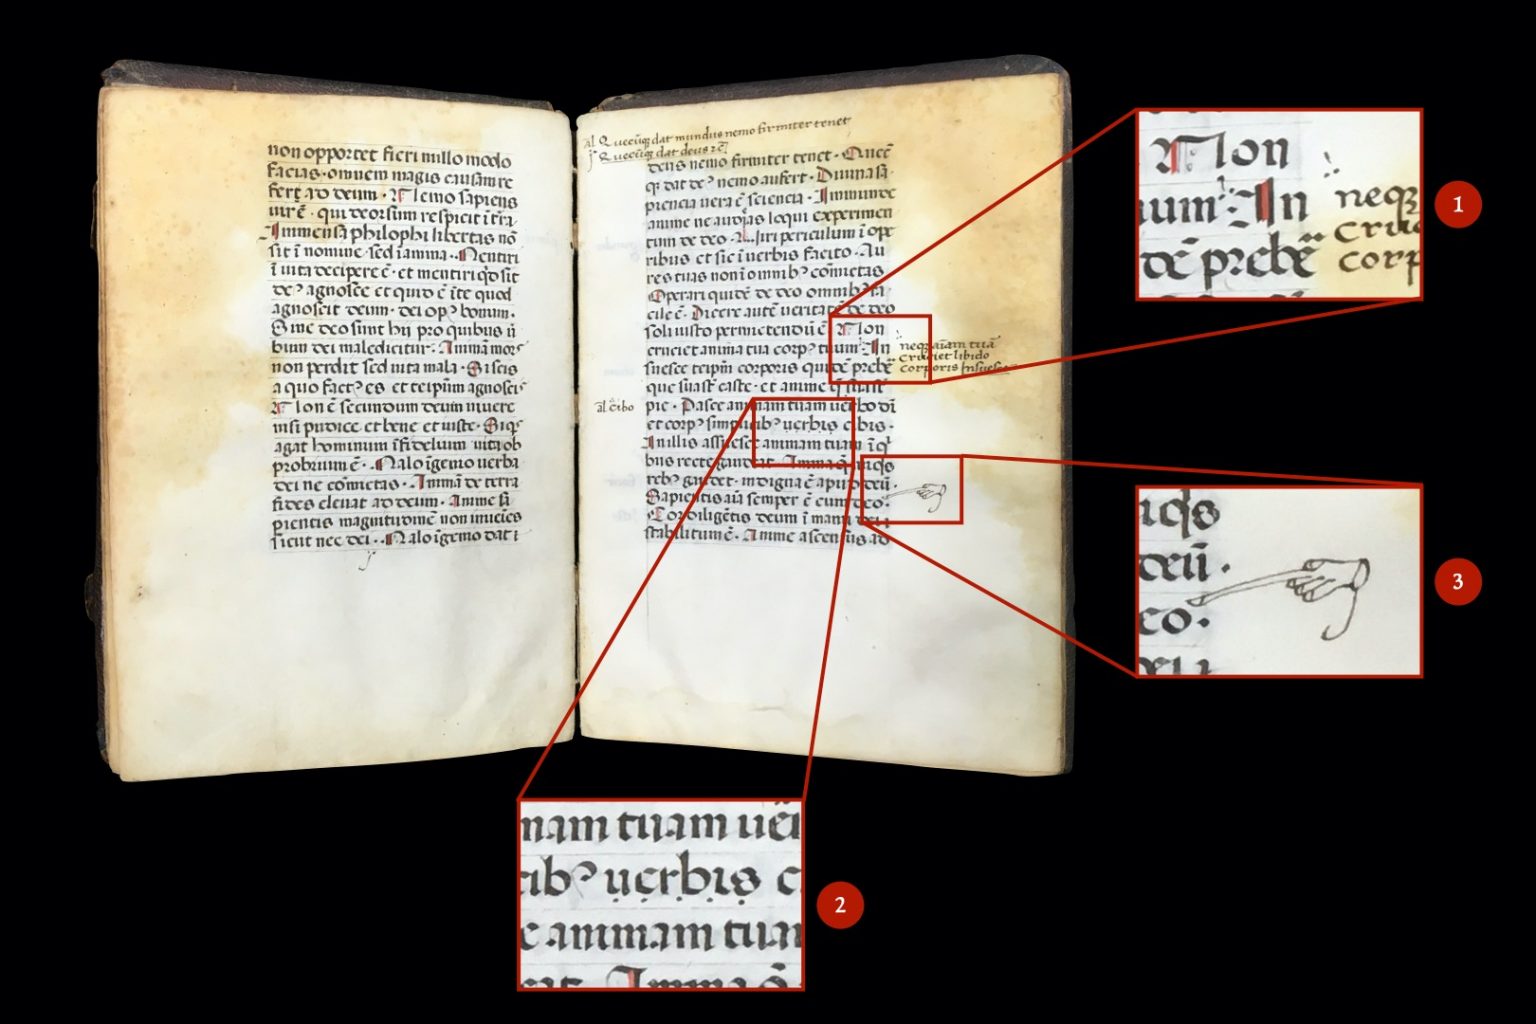 non opportet fieri nullo modo
facias · omnem magis causam re
fert ad deum · Nemo sapiens
uir ē · qui deorsum respicit ī trā
Immensa philophi libertas nō
sit ī nomine · sed ī anima · Mentiri
ī uita decipere ē · et mentiri qd sit
deꝰ agnosce et quid ē ī te quod
agnoscit deum · dei opꝰ bonum ·
Sine deo sunt hii pro quibus
bum dei maledicitur · Animā mors
non perdit sed uita mala · Si scis
a quo factꝰ es et teipm̄ agnosces
Non ē secundum deum uiuere
nisi pudice et bene et iuste · Siqꝫ
agat hominum īfidelium uita ob
probrium ē · Malo īgenio uerba
dei ne cōmictas · Animā de terra
fides eleuat ad deum · Anime sā
pientis magnitudinē non inuenies
sicut nec dei · Malo īgenio dat
al Quecūqꝫ dat mundus nemo firmiter tenet
Quecūqꝫ dat deus
deus nemo firmiter tenet · Quecū
qꝫ dat deꝰ nemo aufert · Diuina sa
piencia uera ē sciencia · Immunde
anime ne audias loqui experimen
tum de deo · Uiri periculum ī ope
ribus et sic ī uerbis facito · Au
res tuas non ī omnibꝫ cōmictas
Operari quidē de deo omnibꝫ fa
cile ē · Dicere autē ueritatē de deo
soli iusto permictendū ē · Non
cruciet anima tua corpꝰ tuum · In
suesce teipm̄ corporis quidē prebē
que sua sūt caste · et anime que sua sūt
pie · Pasce animam tuam uerbo dī
et corpꝰ simplicibꝰ uerbis cibis ·
In illis assuesce animam tuam ī qꝫ
bus recte gaudeat · Anima que
rebꝫ gaudet · indigna ē apud deū ·
Sapientis aīa semper ē cum deo ·
Cor diligētis deum ī manu dei
stabilitum ē · Anime ascensus ad
neqꝫ aīam tuā
cruciet libido
corporis Insuesce
al cibo
Non
uum · In
dē prebē
neqꝫ
cruc
corp
1
nam tuam uer
cibꝰ uerbis c
e animam tuam
2
deū ·
eo ·
3